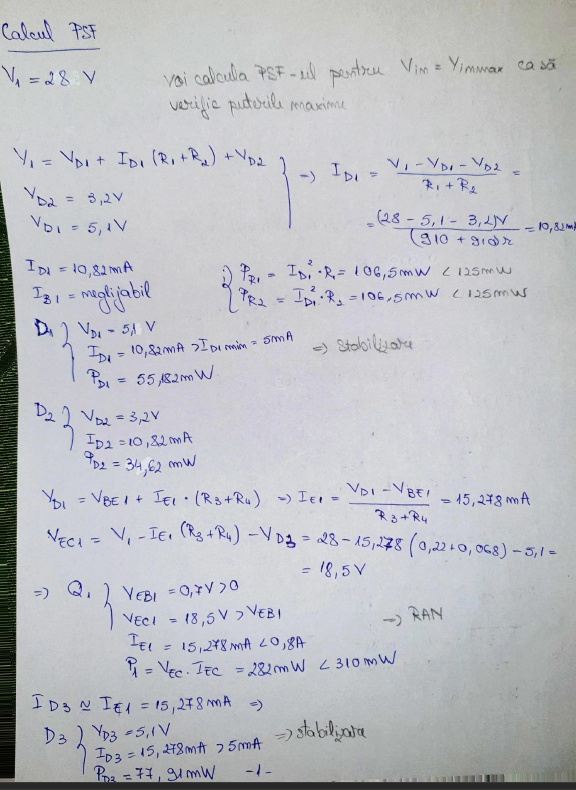 Calcul PSF
V1 = 28 V
voi calcula PSF-ul pentru Vim = Vimmax ca să
verific puterile maxime
V1 = VD1 + ID1 (R1+R2) + VD2
VD2 = 3,2V
VD1 = 5,1V
=> ID1 = (V1 - VD1 - VD2) / (R1 + R2) =
= (28 - 5,1 - 3,2)V / (910 + 910)Ω = 10,82mA
ID1 = 10,82mA
IB1 = neglijabil
PR1 = ID1² · R1 = 106,5mW < 125mW
PR2 = ID1² · R2 = 106,5mW < 125mW
D1 { VD1 = 5,1 V
ID1 = 10,82mA > ID1min = 5mA => Stabilizare
PD1 = 55,182mW
D2 { VD2 = 3,2V
ID2 = 10,82mA
PD2 = 34,62 mW
VD1 = VBE1 + IE1 · (R3+R4) => IE1 = (VD1 - VBE1) / (R3+R4) = 15,278 mA
VEC1 = V1 - IE1 (R3+R4) - VD3 = 28 - 15,278 (0,22+0,068) - 5,1 =
= 18,5V
=> Q1 { VEB1 = 0,7V > 0
VEC1 = 18,5V > VEB1 => RAN
IE1 = 15,278mA < 0,8A
P1 = VEC · IEC = 282mW < 310mW
ID3 ≃ IE1 = 15,278mA =>
D3 { VD3 = 5,1V => stabilizare
ID3 = 15,278mA > 5mA
PD3 = 77,91mW -1-